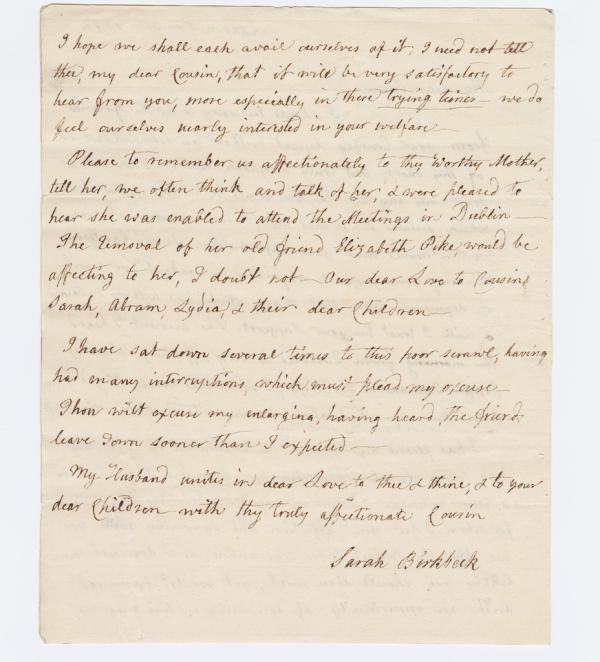 I hope we shall each avail ourselves of it; I need not tell
thee, my dear Cousin, that it will be very satisfactory to
hear from you, more especially in these trying times — we do
feel ourselves nearly interested in your welfare —
Please to remember us affectionately to thy Worthy Mother,
tell her, we often think and talk of her, & were pleased to
hear she was enabled to attend the Meetings in Dublin —
The removal of her old friend Elizabeth Pike, would be
affecting to her, I doubt not — Our dear Love to Cousins
Sarah, Abram, Lydia & their dear Children —
I have sat down several times to this poor scrawl, having
had many interruptions, which must plead my excuse —
Thou wilt excuse my enlarging, having heard, the friends
leave Town sooner than I expected —
My Husband unites in dear Love to thee & thine, & to your
dear Children with thy truly affectionate Cousin
Sarah Birkbeck